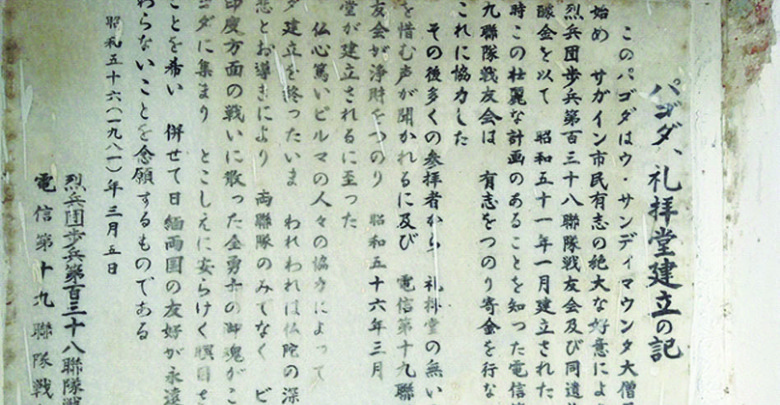 パゴダ、礼拝堂建立の記
このパゴダはウ・サンディマウンタ大僧正
始め サガイン市民有志の絶大な好意によ
烈兵団歩兵第百三十八聯隊戦友会及び同遺
醵金を以て 昭和五十一年一月建立された
時この壮麗な計画のあることを知った電信
九聯隊戦友会は 有志をつのり寄金を行な
これに協力した
その後多くの参拝者から 礼拝堂の無い
を惜む声が聞かれるに及び 電信第十九聯
友会が浄財をつのり 昭和五十六年三月
堂が建立されるに至った
仏心篤いビルマの人々の協力によって
ダ建立を終ったいま われわれは仏陀の深
悲とお導きにより 両聯隊のみでなく ビ
印度方面の戦いに散った全勇士の御魂がこ
ゴダに集まり とこしえに安らけく瞑目
ことを希い 併せて日緬両国の友好が永遠
わらないことを念願するものである
昭和五十六(一九八一)年三月五日
烈兵団歩兵第百三十八聯隊戦
電信第十九聯隊戦